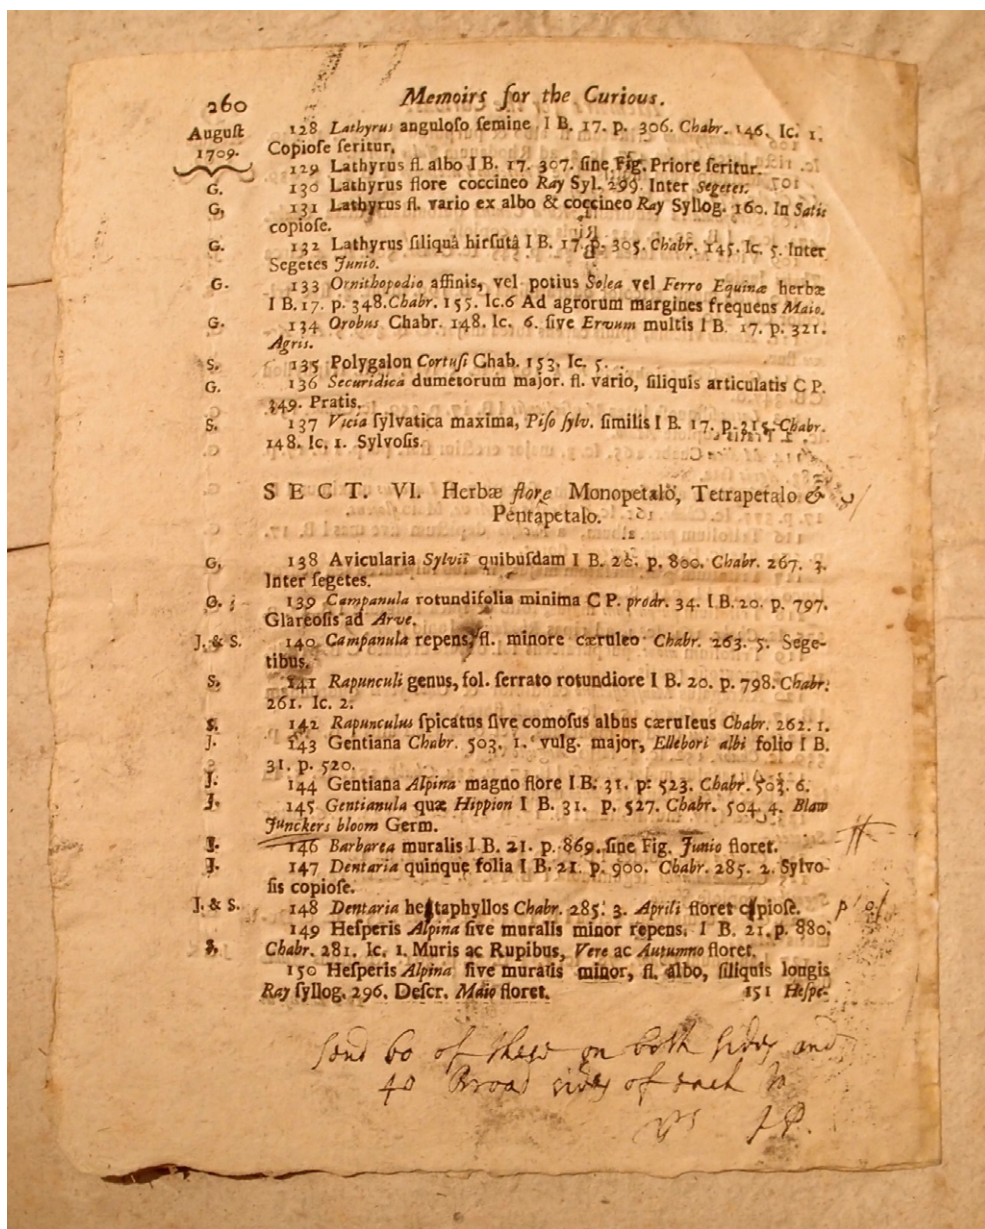 260 Memoirs for the Curious.
August 128 Lathyrus anguloſo ſemine I B. 17. p. 306. Chabr. 146. Ic. 1.
1709. Copioſe ſeritur.
129 Lathyrus fl. albo I B. 17. 307. ſine Fig. Priore ſeritur.
G. 130 Lathyrus flore coccineo Ray Syl. 299. Inter ſegetes.
G, 131 Lathyrus fl. vario ex albo & coccineo Ray Syllog. 160. In Satis
copioſe.
G. 132 Lathyrus ſiliquâ hirſutâ I B. 17. p. 305. Chabr. 145. Ic. 5. Inter
Segetes Junio.
G. 133 Ornithopodio affinis, vel potius Solea vel Ferro Equinæ herbæ
I B. 17. p. 348. Chabr. 155. Ic.6 Ad agrorum margines frequens Maio.
G. 134 Orobus Chabr. 148. Ic. 6. ſive Ervum multis I B. 17. p. 321.
Agris.
S. 135 Polygalon Cortuſi Chab. 153. Ic. 5.
G. 136 Securidica dumetorum major. fl. vario, ſiliquis articulatis C P.
349. Pratis.
S. 137 Vicia ſylvatica maxima, Piſo ſylv. ſimilis I B. 17. p. 315. Chabr.
148. Ic. 1. Sylvoſis.
SECT. VI. Herbæ flore Monopetalo, Tetrapetalo &
Pentapetalo.
G, 138 Avicularia Sylvii quibuſdam I B. 28. p. 800. Chabr. 267. 3.
Inter ſegetes.
G. 139 Campanula rotundifolia minima C P. prodr. 34. I B. 20. p. 797.
Glareoſis ad Arve.
J. & S. 140 Campanula repens, fl. minore cæruleo Chabr. 263. 5. Sege-
tibus.
S. 141 Rapunculi genus, fol. ſerrato rotundiore I B. 20. p. 798. Chabr.
261. Ic. 2.
S. 142 Rapunculus ſpicatus ſive comoſus albus cæruleus Chabr. 262. 1.
J. 143 Gentiana Chabr. 503. 1. vulg. major, Ellebori albi folio I B.
31. p. 520.
J. 144 Gentiana Alpina magno flore I B. 31. p. 523. Chabr. 503. 6.
J. 145 Gentianula quæ Hippion I B. 31. p. 527. Chabr. 504. 4. Blaw
Junckers bloom Germ.
J. 146 Barbarea muralis I B. 21. p. 869. ſine Fig. Junio floret.
J. 147 Dentaria quinque folia I B. 21. p. 900. Chabr. 285. 2. Sylvo-
ſis copioſe.
J. & S. 148 Dentaria heptaphyllos Chabr. 285. 3. Aprili floret copioſe. p o/
149 Heſperis Alpina ſive muralis minor repens. I B. 21. p. 880.
S, Chabr. 281. Ic. 1. Muris ac Rupibus, Vere ac Autumno floret.
150 Heſperis Alpina ſive muralis minor, fl. albo, ſiliquis longis
Ray ſyllog. 296. Deſcr. Maio floret. 151 Heſpe-
ſend 60 of theſe on both ſides and
40 Broad ſides of each to
yrs JP.